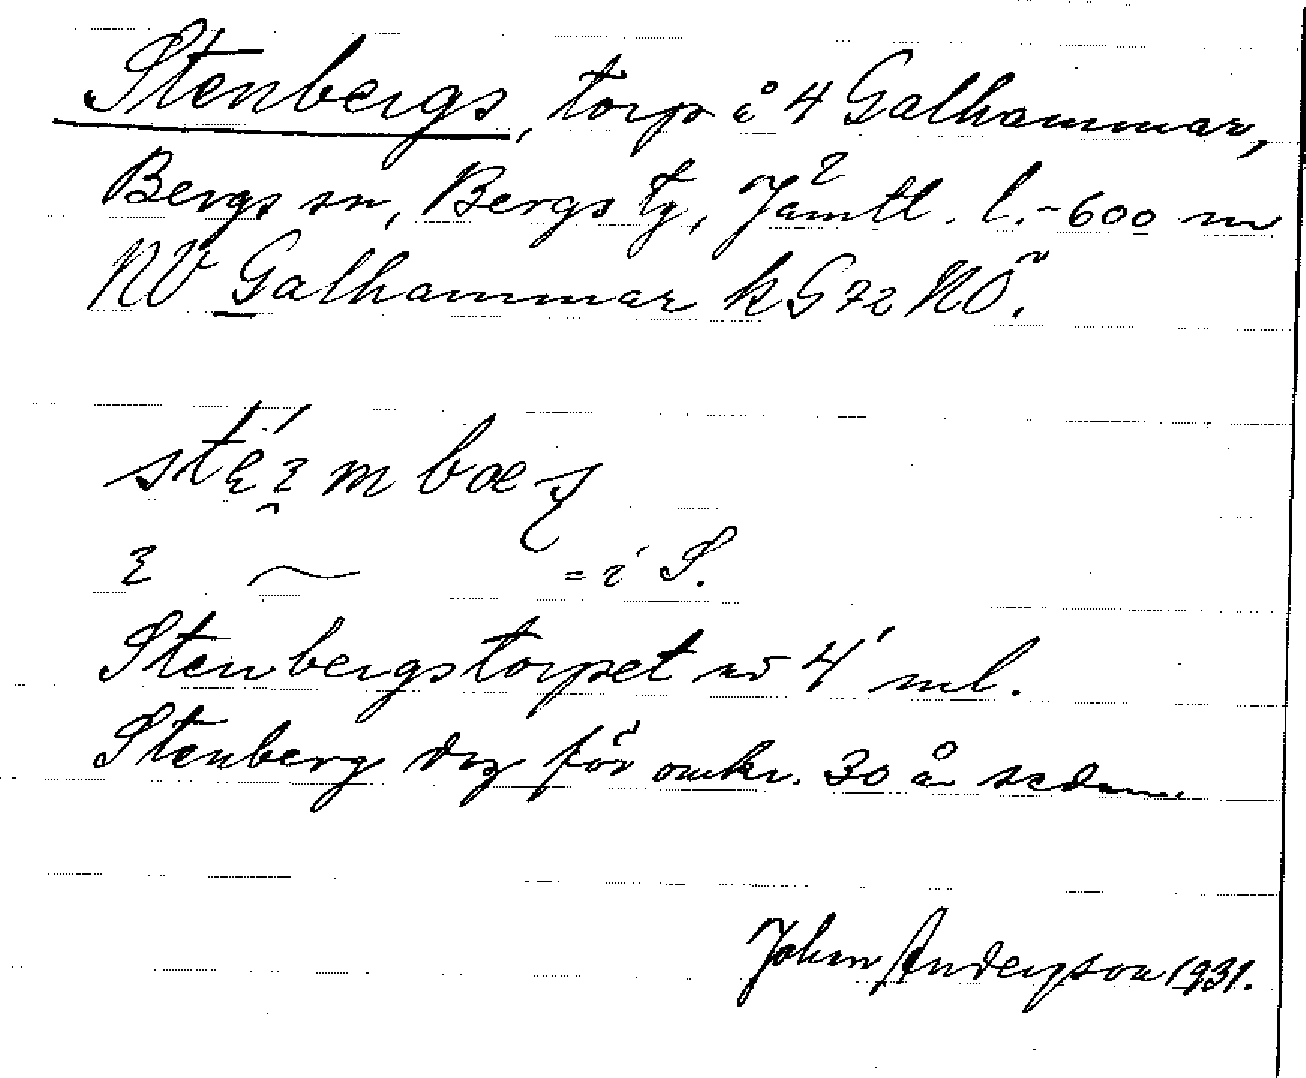 Stenbergs, torp å 4 Galhammar,
Bergs sn, Bergs tg, Jämtl. l. - 600 m
NV Galhammar k G 72 NÖ.
= i S.
Stenbergstorpet nr 4 ml.
Stenberg dog för omkr. 30 år sedan.
John Anderson 1931.